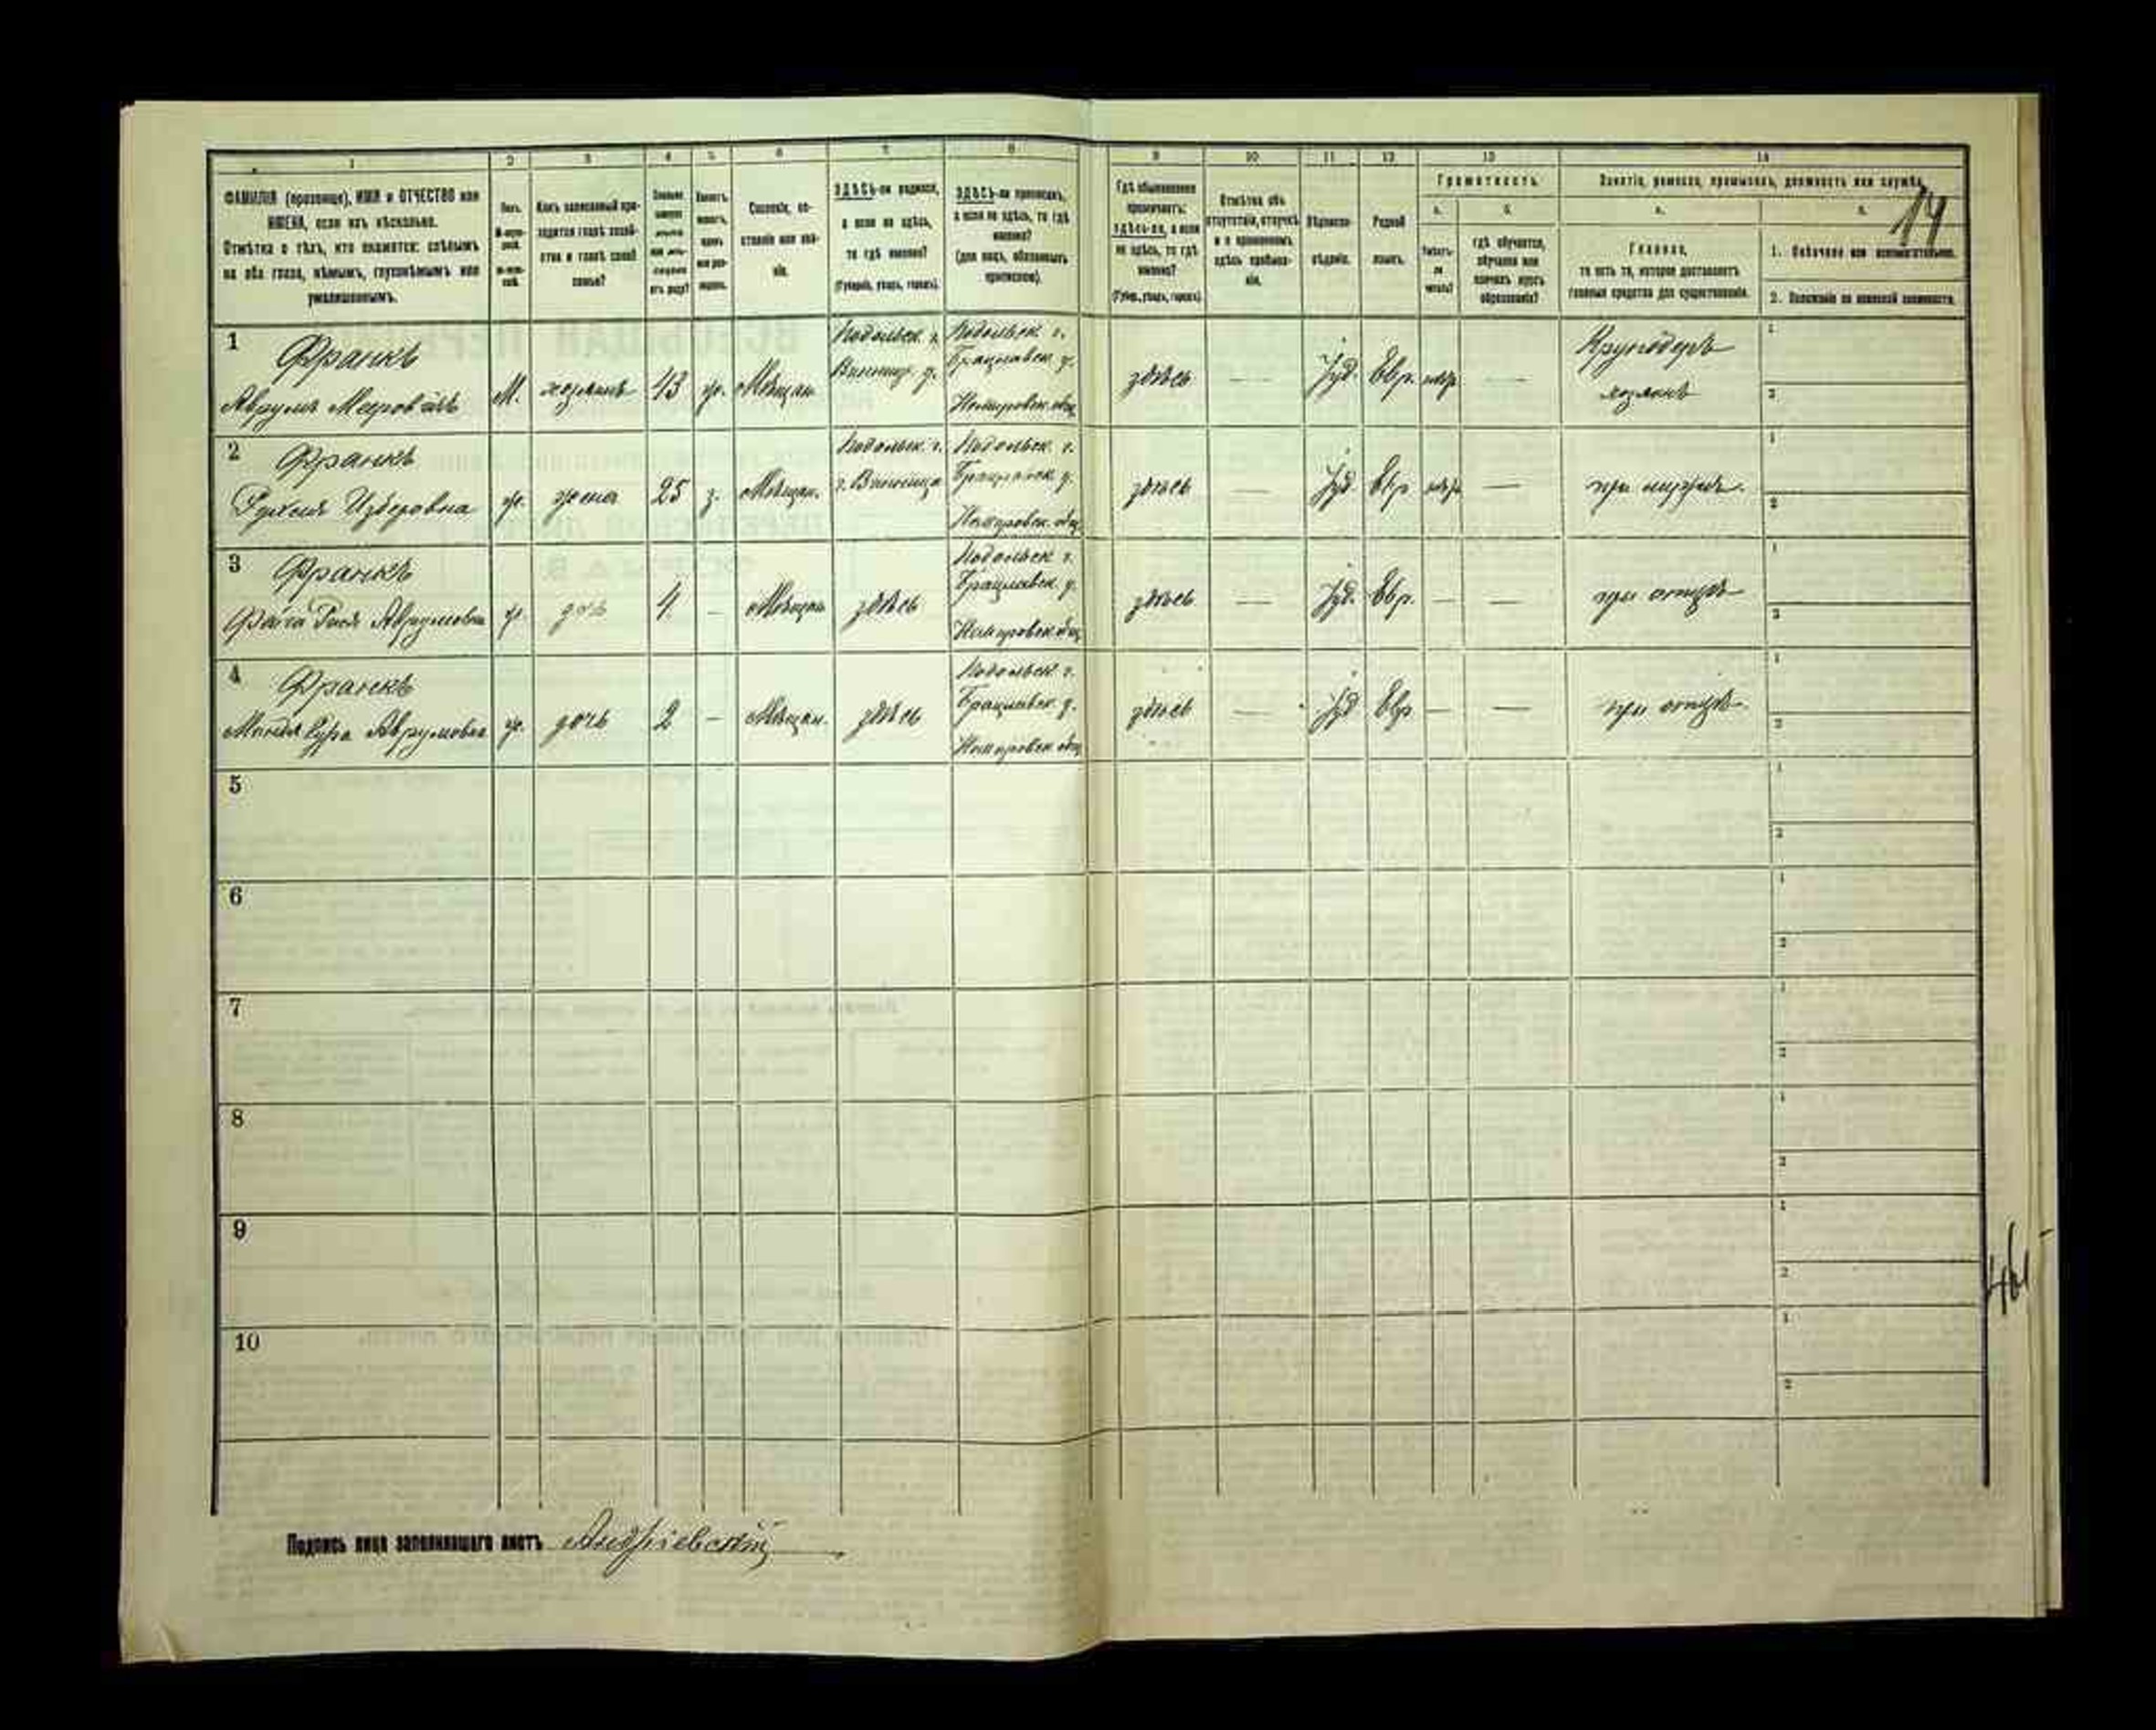 1 2 3 4 5 6 7 8 9 10 11 12 13 14
ФАМИЛІЯ (прозвище), ИМЯ и ОТЧЕСТВО или
ИМЕНА, если ихъ нѣсколько.
Отмѣтка о тѣхъ, кто окажется: слѣпымъ
на оба глаза, нѣмымъ, глухонѣмымъ или
умалишеннымъ.
Полъ.
Какъ записанный при-
ходится главѣ хозяй-
ства и главѣ своей
семьи?
Сословіе, со-
стояніе или зва-
ніе.
ЗДѢСЬ-ли родился,
а если не здѣсь,
то гдѣ именно?
(Губернія, уѣздъ, городъ).
ЗДѢСЬ-ли приписанъ,
а если не здѣсь, то гдѣ
именно?
(для лицъ, обязанныхъ
припиской).
Гдѣ обыкновенно
проживаетъ:
здѣсь-ли, а если
не здѣсь, то гдѣ
именно?
(Губер., уѣздъ, городъ).
Отмѣтка объ
отсутствіи, отлучкѣ
и о временномъ
здѣсь пребыва-
ніи.
Вѣроиспо-
вѣданіе.
Родной
языкъ.
Грамотность.
а. б.
Умѣетъ-
ли
читать?
гдѣ обучается,
обучался или
кончилъ курсъ
образованія?
Занятіе, ремесло, промыселъ, должность или служба.
14
Главное,
то есть то, которое доставляетъ
главныя средства для существованія.
1. Побочное или вспомогательное.
2. Положеніе по воинской повинности.
1 Франкъ
Аврумъ Мееровичъ
М. хозяинъ 43 Мѣщан.
Подольск. г.
Винниц. у.
Подольск. г.
Брацлавск. у.
Немировск. общ.
здѣсь — Іуд. Евр. —
хозяинъ
2 Франкъ
ж. жена 25 з. Мѣщан.
Подольск. г.
г. Винница
Подольск. г.
Брацлавск. у.
Немировск. общ.
здѣсь — Іуд. Евр. —
при мужѣ.
3 Франкъ
Аврумовна
ж. дочь 4 — Мѣщан. здѣсь
Подольск. г.
Брацлавск. у.
Немировск. общ.
здѣсь — Іуд. Евр. — —
при отцѣ
4 Франкъ
Сура Аврумовна
ж. дочь 2 — Мѣщан. здѣсь
Подольск. г.
Брацлавск. у.
Немировск. общ.
здѣсь — Іуд. Евр. — —
при отцѣ.
5
6
7
8
9
10
Подпись лица заполнившаго листъ Андріевскій